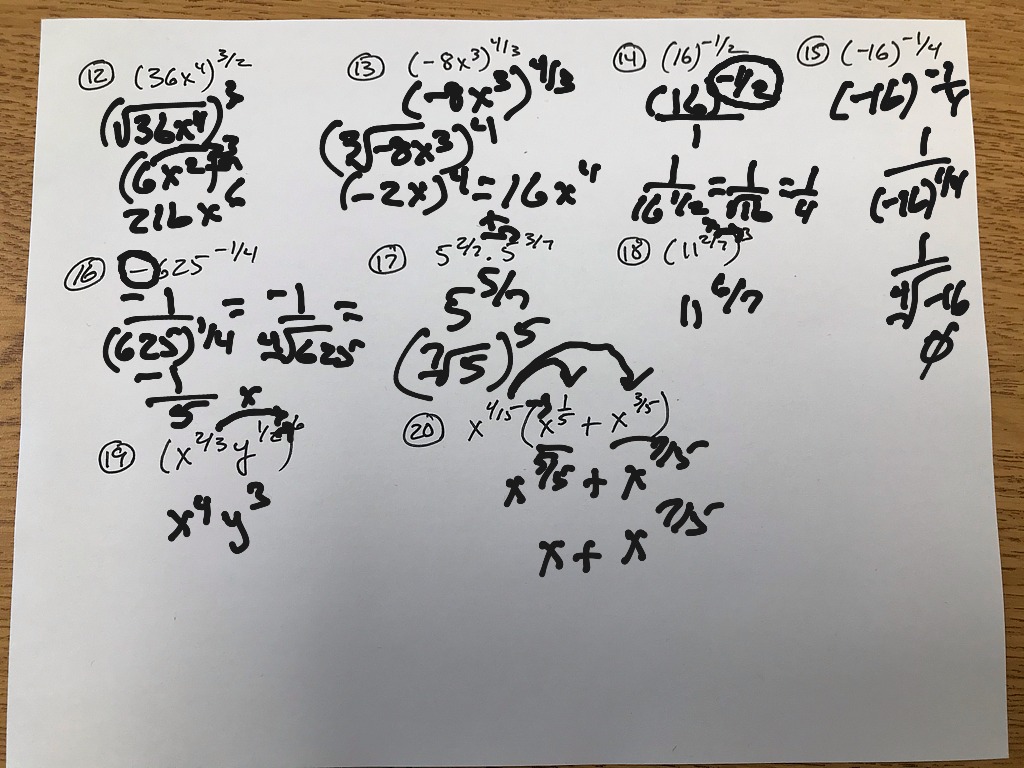 ⑫ (36x⁴)^3/2
(√36x⁴)³
(6x²)³
216x⁶
⑬ (-8x³)^4/3
(-8x³)^4/3
(∛-8x³)⁴
(-2x)⁴ = 16x⁴
⑭ (16)^-1/2
(16)^-1/2 / 1
1/16^1/2 = 1/√16 = 1/4
⑮ (-16)^-1/4
(-16)^-1/4
1/(-16)^1/4
1/∜-16
∅
⑯ -625^-1/4
-1/(625)^1/4 = -1/∜625 =
-1/5
⑰ 5^2/7 · 5^3/7
+
5^5/7
(⁷√5)⁵
⑱ (11^2/7)³
11^6/7
⑲ (x^2/3 y^1/2)⁶
x
x⁴y³
⑳ x^4/5 (x^1/5 + x^3/5)
x^5/5 + x^7/5
x + x^7/5